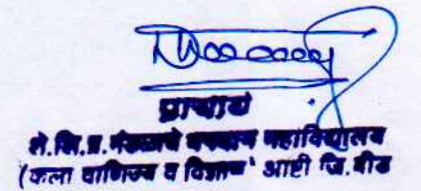 प्राचार्य
शे.शि.प्र.मंडळाचे महाविद्यालय
(कला वाणिज्य व विज्ञान) आष्टी जि.बीड